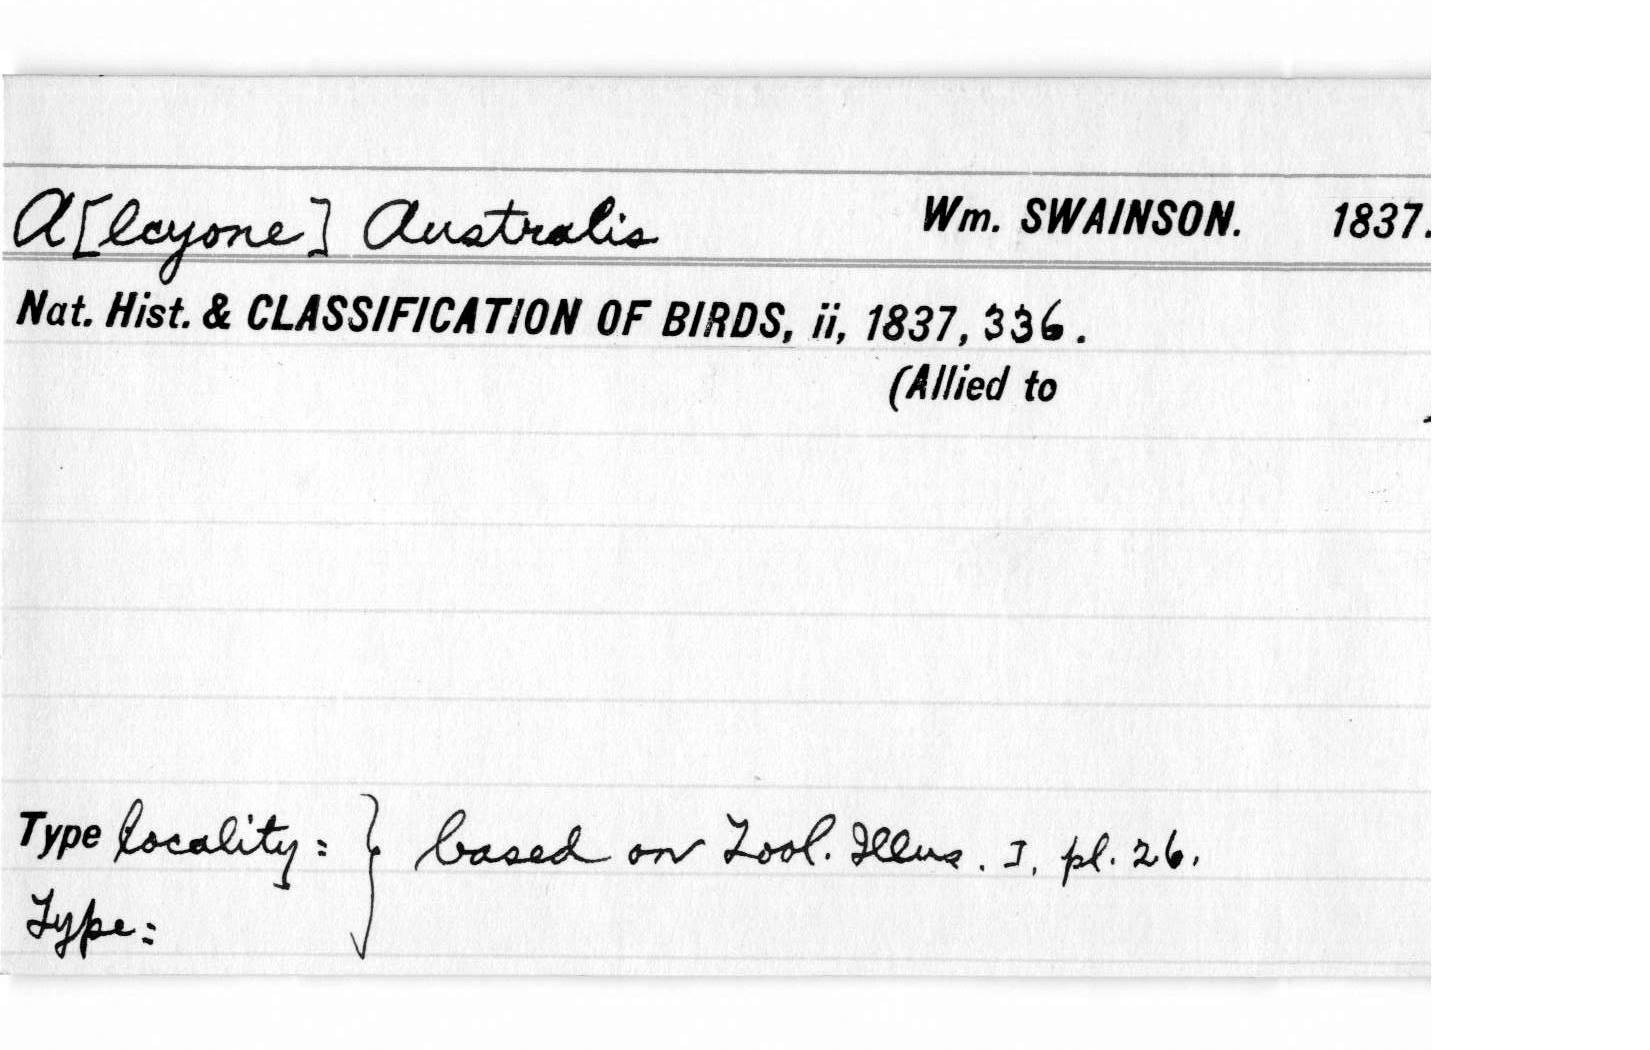 A[lcyone] Australis Wm. SWAINSON. 1837.
Nat. Hist. & CLASSIFICATION OF BIRDS, ii, 1837, 336.
(Allied to
Type locality: } based on Zool. Illus. I, pl. 26.
Type: